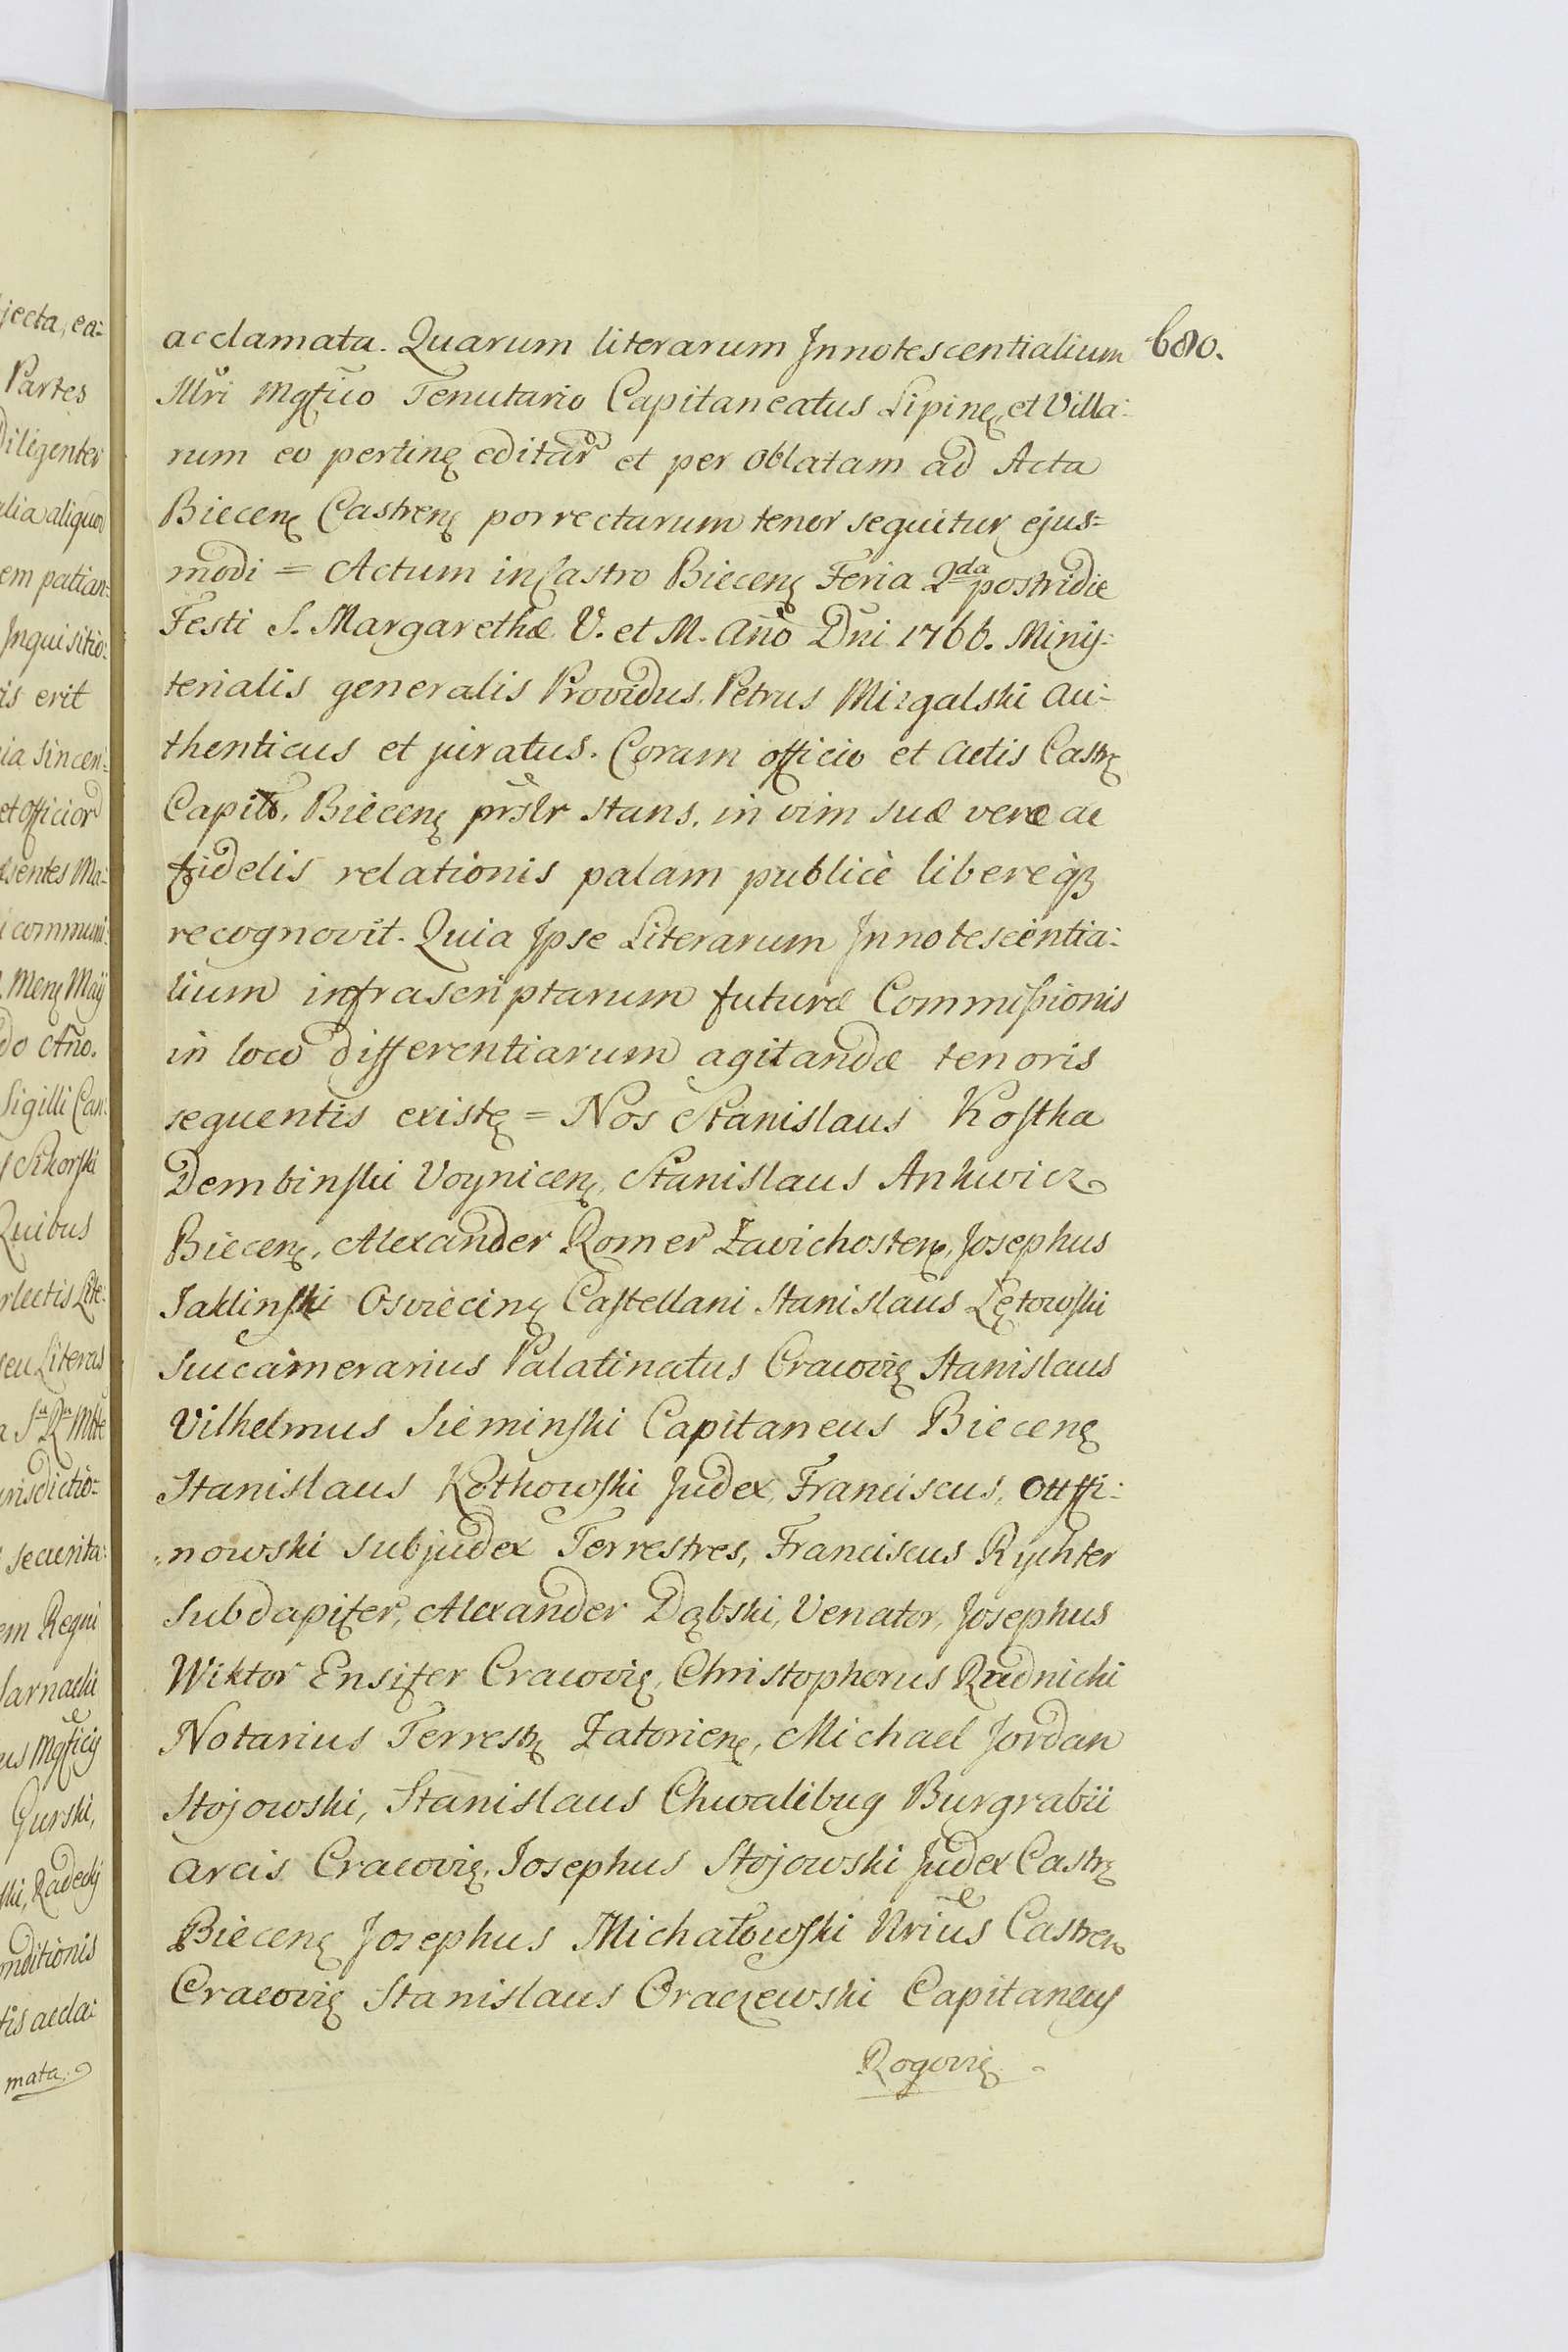 jecta, ea=
Partes
Diligenter
alia aliquor
em patian=
Inquisitio=
is erit
ia sincer=
et Officior
sentes Ma=
communi=
Menę Maij
do Año.
Sigilli Can=
Sikorski
Quibus
rlectis Lite=
seu Literas
urisdictio=
securita=
em Regni
us Mgficij
Gurski,
ski, Radecky
onditionis
tis accla=
mata.
680.
acclamata. Quarum literarum Innotescentialium
Illri Mgfico Tenutario Capitaneatus Lipinę et Villa=
rum eo pertinę editar et per Oblatam ad Acta
Biecenę Castrenę porrectarum tenor sequitur ejus=
modi = Actum in Castro Biecenę Feria 2da postridie
Festi S. Margarethæ V. et M. Año Dni 1766. Minis=
terialis generalis Providus Petrus Mizgalski au=
thenticus et juratus. Coram officio et Actis Castrę
Capits. Biecenę prslr stans, in vim suæ veræ ac
fidelis relationis palam publicè libereqȝ
recognovit. Quia Ipse Literarum Innotescentia=
lium infrascriptarum futuræ Commissionis
in loco differentiarum agitandæ tenoris
sequentis existę = Nos Stanislaus Kostka
Dembinski Voynicenę, Stanislaus Ankwicz
Biecenę, Alexander Romer Zavichostenę, Josephus
Jaklinski Osviecinę Castellani Stanislaus Łętowski
Succamerarius Palatinatus Cracovię Stanislaus
Vilhelmus Sieminski Capitaneus Biecenę
Stanislaus Kotkowski Judex, Franciscus, Otffi=
nowski subjudex Terrestres, Franciscus Rychter
Subdapifer, Alexander Dąbski, Venator, Josephus
Wiktor Ensifer Cracovię, Christophorus Rudnicki
Notarius Terrestrę Zatorienę, Michael Jordan
Stojowski, Stanislaus Chwalibug Burgrabii
Arcis Cracovię, Josephus Stojowski Judex Castrę
Biecenę Josephus Michałowski Nrius Castrenę
Cracovię Stanislaus Oraczewski Capitaneus
Rogovię